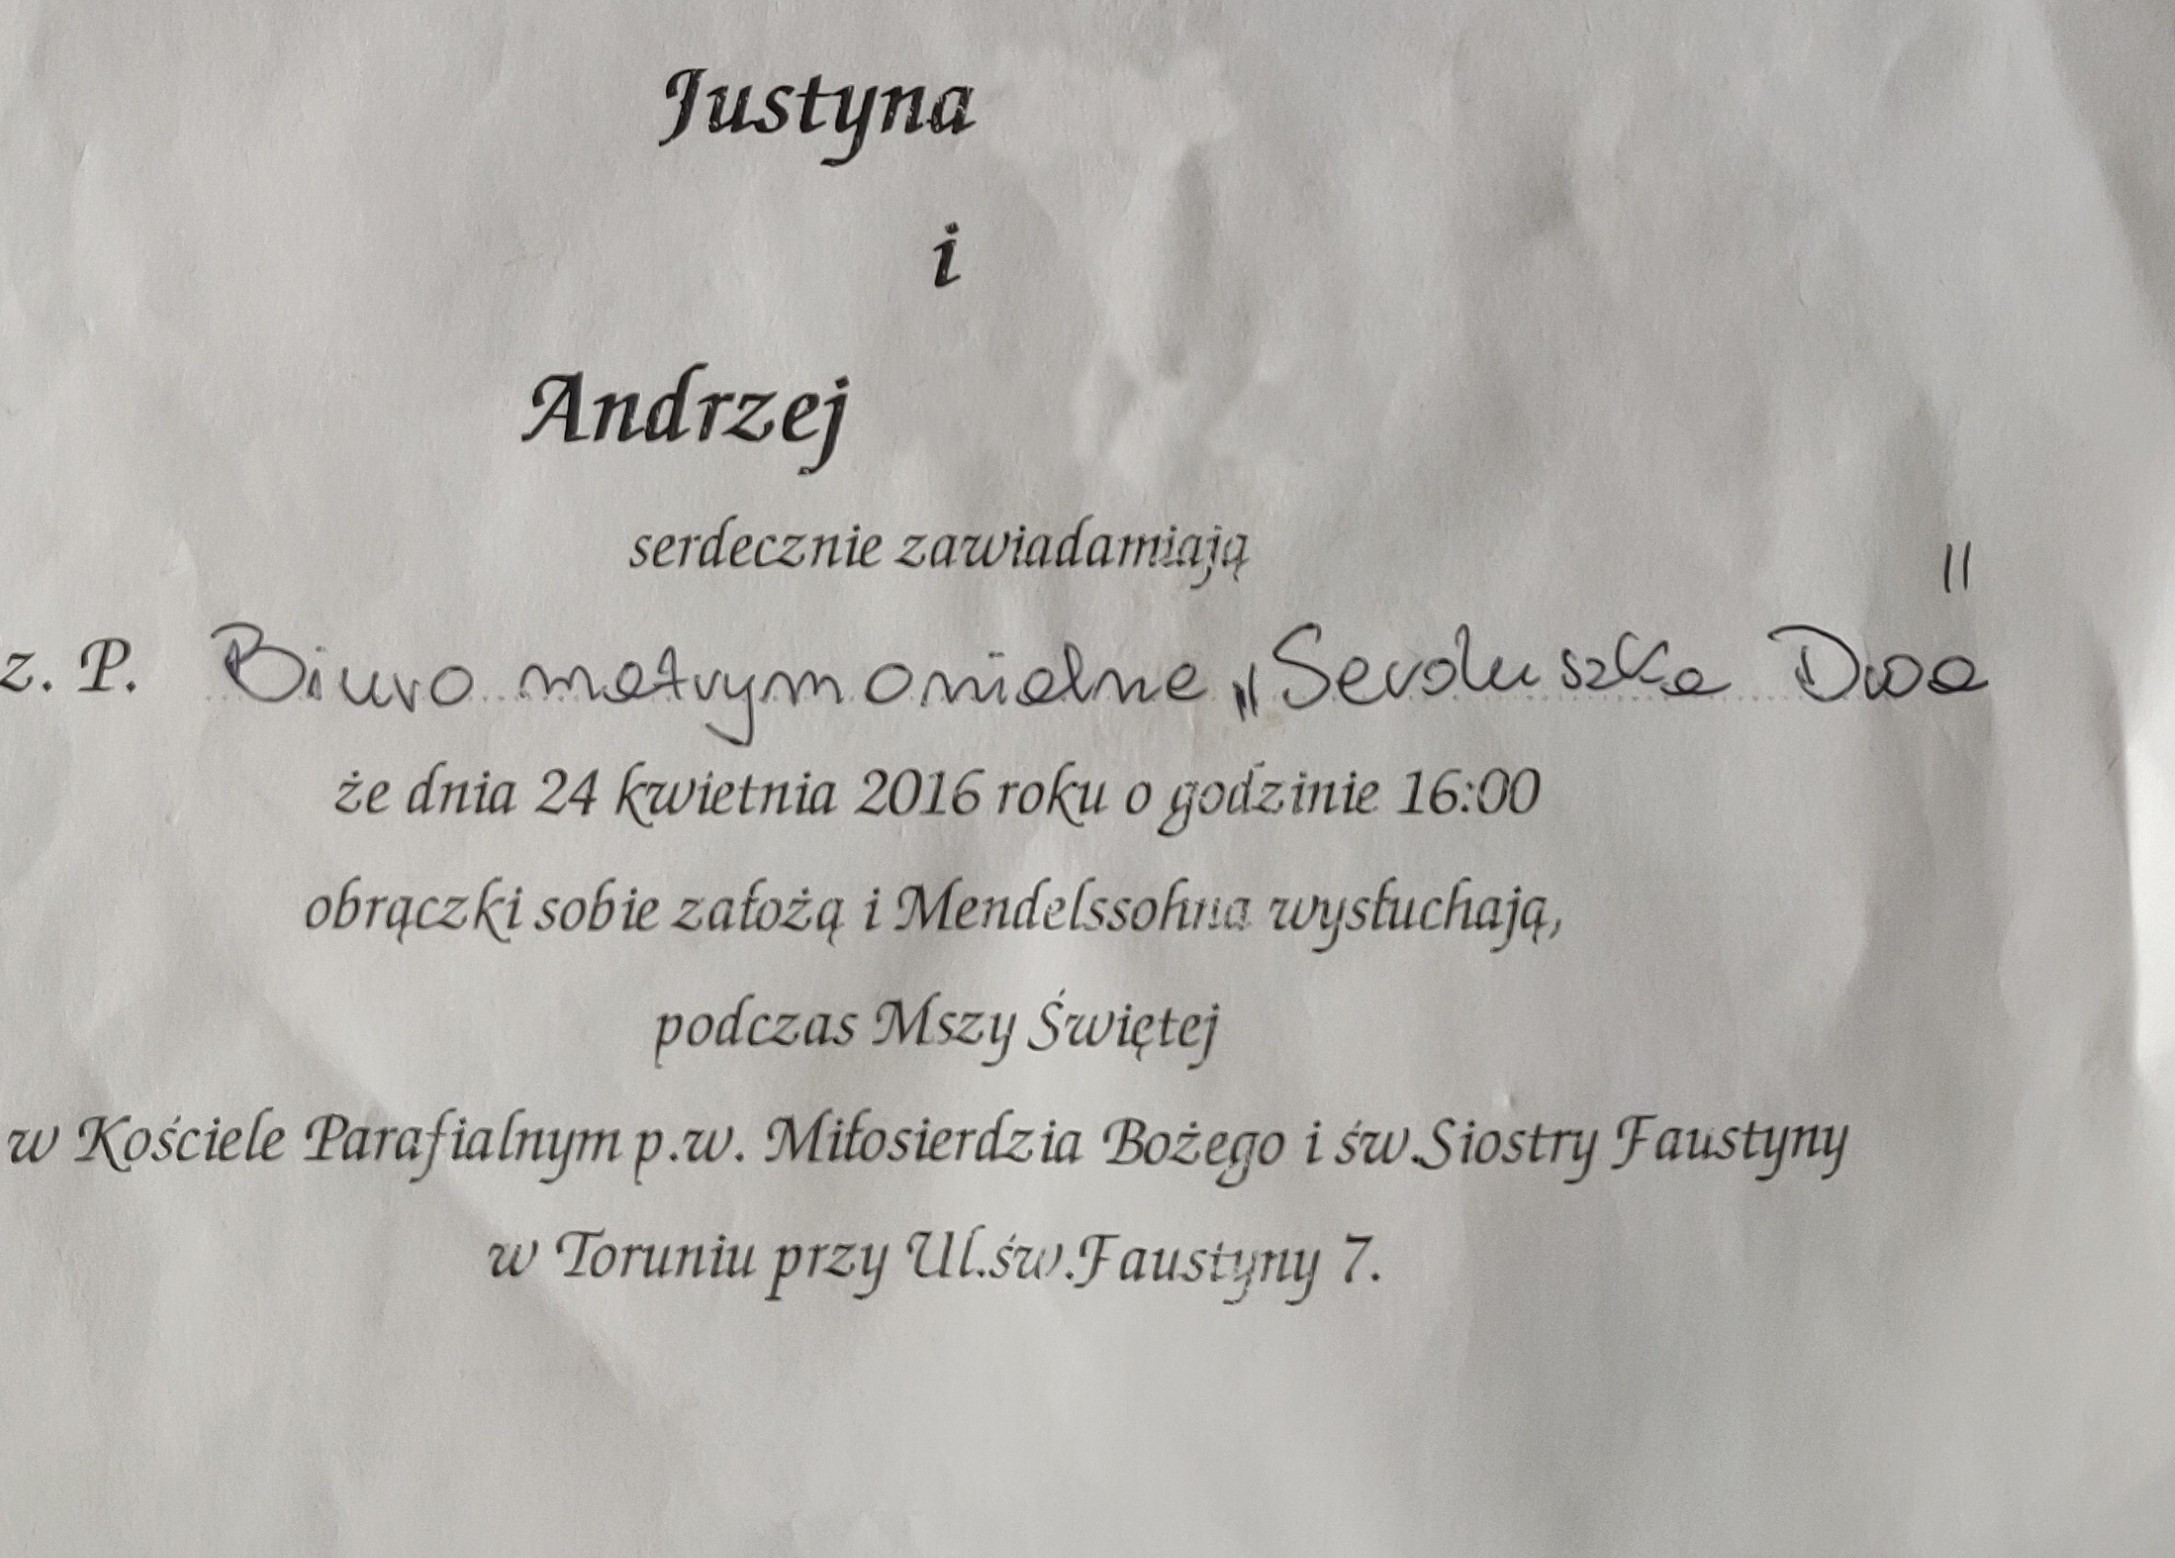 Justyna
i
Andrzej
serdecznie zawiadamiają
z. P. Biuro matrymonialne „Serduszka Dwa"
że dnia 24 kwietnia 2016 roku o godzinie 16:00
obrączki sobie założą i Mendelssohna wysłuchają,
podczas Mszy Świętej
w Kościele Parafialnym p.w. Miłosierdzia Bożego i św.Siostry Faustyny
w Toruniu przy Ul.św.Faustyny 7.